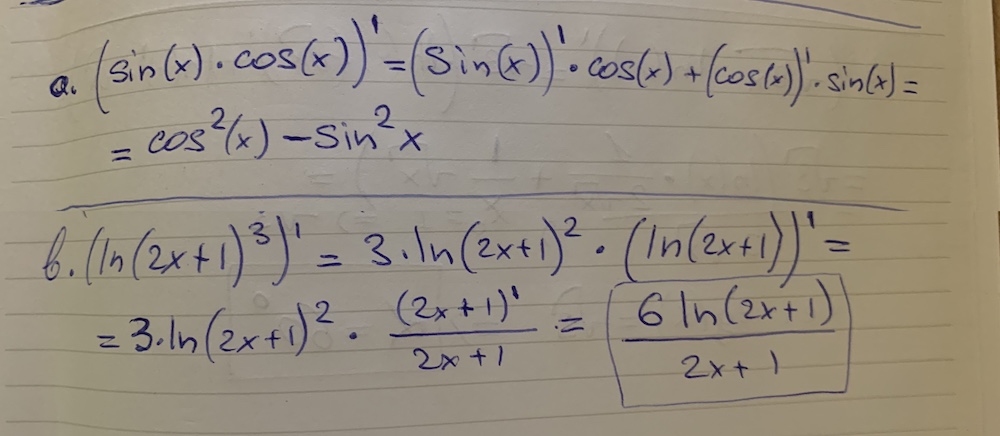 a. (sin(x) · cos(x))' = (Sin(x))' · cos(x) + (cos(x))' · sin(x) =
= cos²(x) – sin²x
b. (ln(2x+1)³)' = 3·ln(2x+1)² · (ln(2x+1))' =
= 3·ln(2x+1)² · (2x+1)'/2x+1 = 6 ln(2x+1)/2x+1